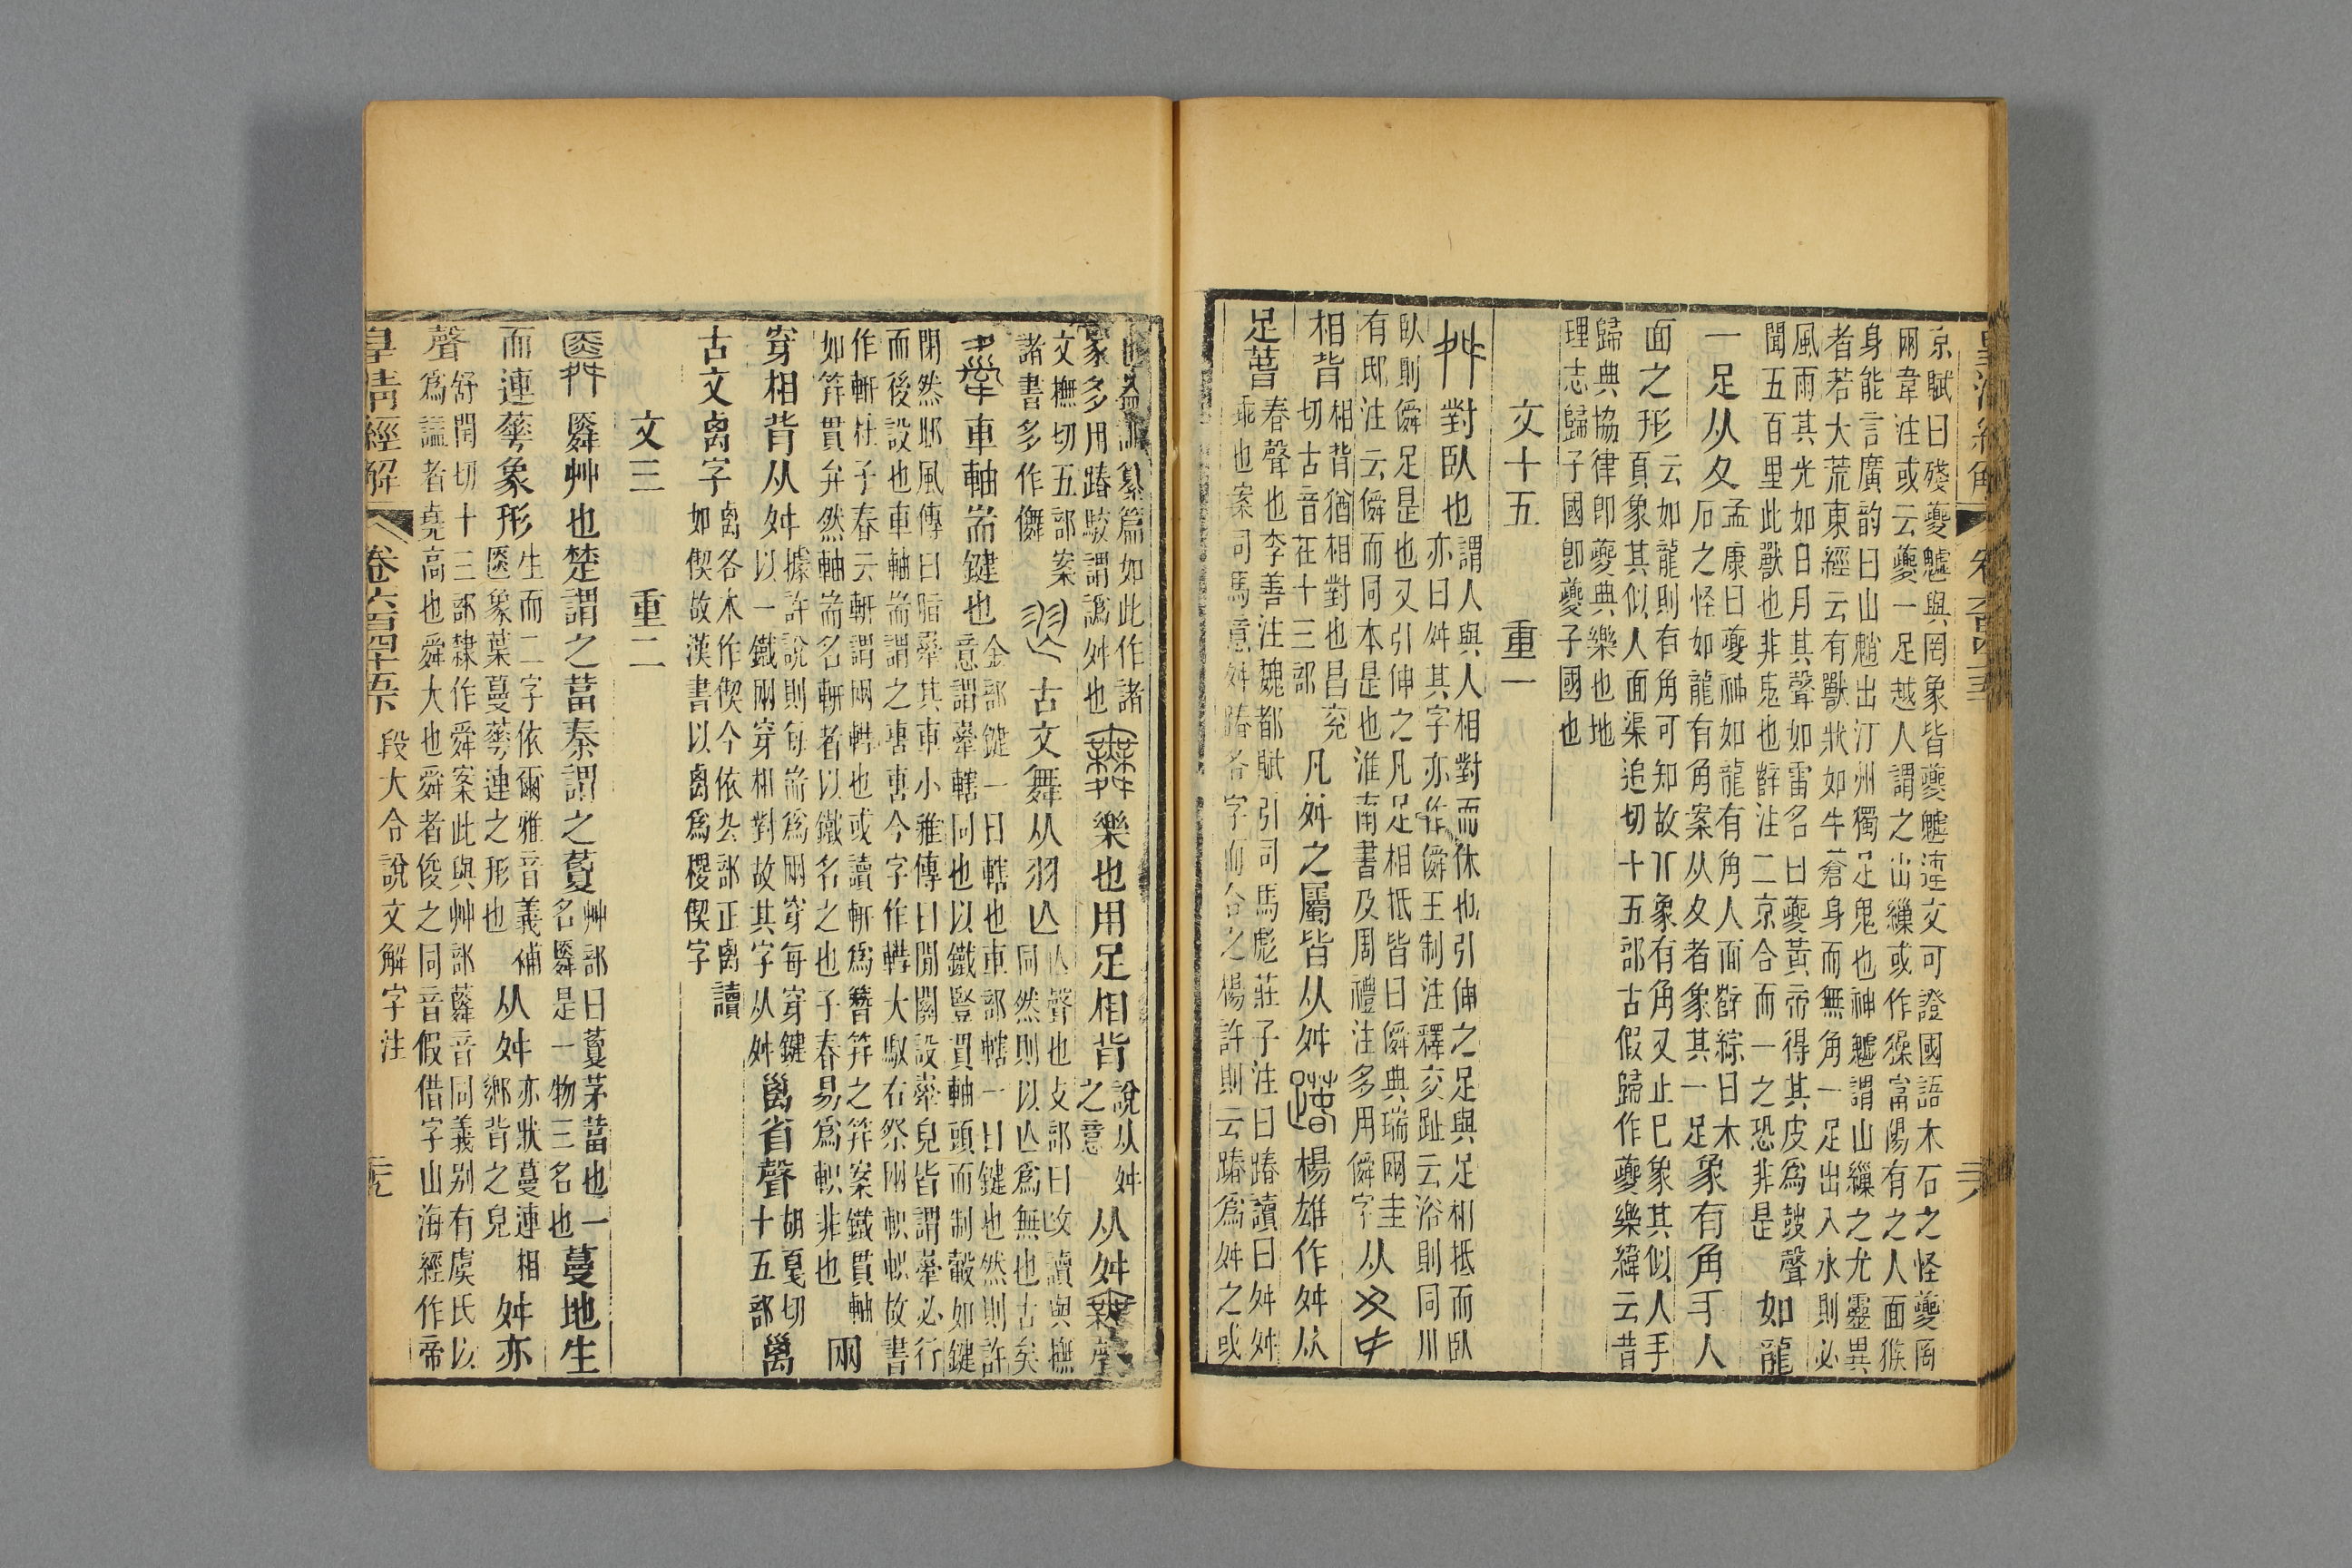 京賦曰殘夔魖與罔象皆夔魖連文可證國語木石之怪夔罔
兩韋注或云夔一足越人謂之山繅或作獟富陽有之人面猴
身能言廣韵曰山魈出汀州獨足鬼也神魖謂山繅之尤靈異
者若大荒東經云有獸狀如牛蒼身而無角一足出入水則必
風雨其光如日月其聲如雷名曰夔黃帝得其皮爲鼓聲
聞五百里此獸也非鬼也薛注二京合而一之恐非是
如龍
一足从夊
孟康曰夔神如龍有角人面薛綜曰木
石之怪如龍有角案从夊者象其一足
象有角手人
面之形
云如龍則有角可知故丷象有角又止巳象其似人手
頁象其似人面渠追切十五部古假歸作夔樂緯云昔
歸典協律卽夔典樂也地
理志歸子國卽夔子國也
文十五　重一
舛對臥也
謂人與人相對而休也引伸之足與足相抵而臥
亦曰舛其字亦作僢王制注釋交趾云浴則同川
臥則僢足是也又引伸之凡足相抵皆曰僢典瑞兩圭
有邸注云僢而同本是也淮南書及周禮注多用僢字
从夊㐄
相背
相背猶相對也昌兖
切古音在十三部
凡舛之屬皆从舛
踳
楊雄作舛从
足萅
春聲也李善注魏都賦引司馬彪莊子注曰踳讀曰舛舛
乖也案司馬意舛踳各字而合之楊許則云踳爲舛之或
篇如此作諸
家多用踳駁謂譌舛也
舞
樂也用足相背
說从舛
之意
从舛
文撫切五部案
諸書多作儛
古文舞从羽亾
亾聲也攴部曰㪺讀與撫
同然則以亾爲無也古矣
舝
車軸耑鍵也
金部鍵一曰轄也車部轄一曰鍵也然則許
意謂舝轄同也以鐵豎貫軸頭而制轂如鍵
閉然邶風傳曰脂舝其車小雅傳曰閒關設舝皃皆謂舝必行
而後設也車軸耑謂之軎軎今字作轊大馭右祭兩軹軹故書
作軒杜子春云軒謂兩轊也或讀軒爲簪筓之筓案鐵貫軸
如筓貫弁然軸耑名軒者以鐵名之也子春易爲軹非也
兩
穿相背从舛
據許說則每耑爲兩穿每穿鍵
以一鐵兩穿相對故其字从舛
𥜽省聲
胡戛切
十五部
𥜽
古文偰字
㓞各本作偰今依厹部正禼讀
如偰故漢書以禼爲稷偰字
文三　重二
䑞
䑞艸也楚謂之葍秦謂之藑
艸部曰藑茅葍也一
名䑞是一物三名也
蔓地生
而連蕐象形
生而二字依爾雅音義補
匧象葉蔓蕐連之形也
从舛
亦狀蔓連相
鄉背之皃
舛亦
聲
舒閏切十三部隸作舜案此與艸部蕣音同義別有虞氏以
爲謚者堯高也舜大也舜者俊之同音假借字山海經作帝
皇清經解
卷六百四十五下
段大令說文解字注